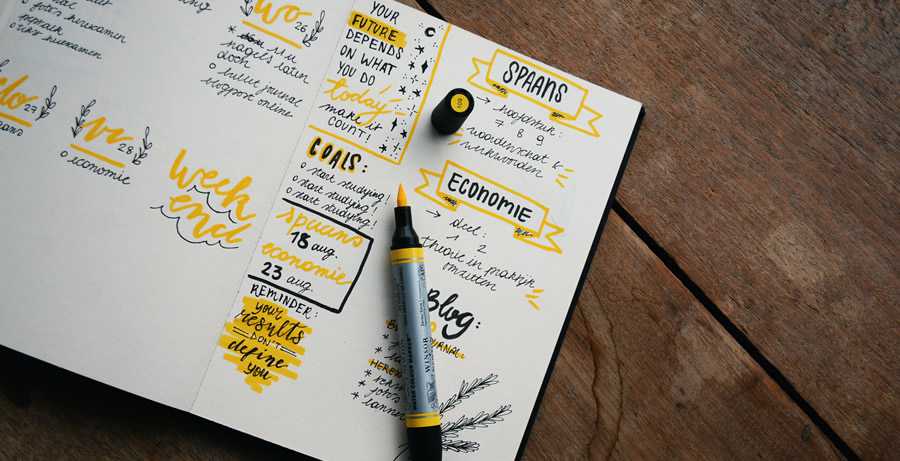 foto's herexamen
herexamen
wo 26
nagels laten
doen
o bullet journal
blogpost online
do 27
vr 28
o economie
week
end
YOUR
FUTURE
DEPENDS
ON WHAT
YOU DO
today
make it
COUNT!
GOALS:
o start studying!
o start studying!
o start studying!
spaans
18 aug.
economie
23 aug.
REMINDER:
your
results
DON'T
define
you
SPAANS
→ hoofdstuk:
7 8 9
woordenschat &
werkwoorden
ECONOMIE
→ deel:
1 2
theorie in praktijk
omzetten
Blog:
HEREX
foto's
banner
WINSOR